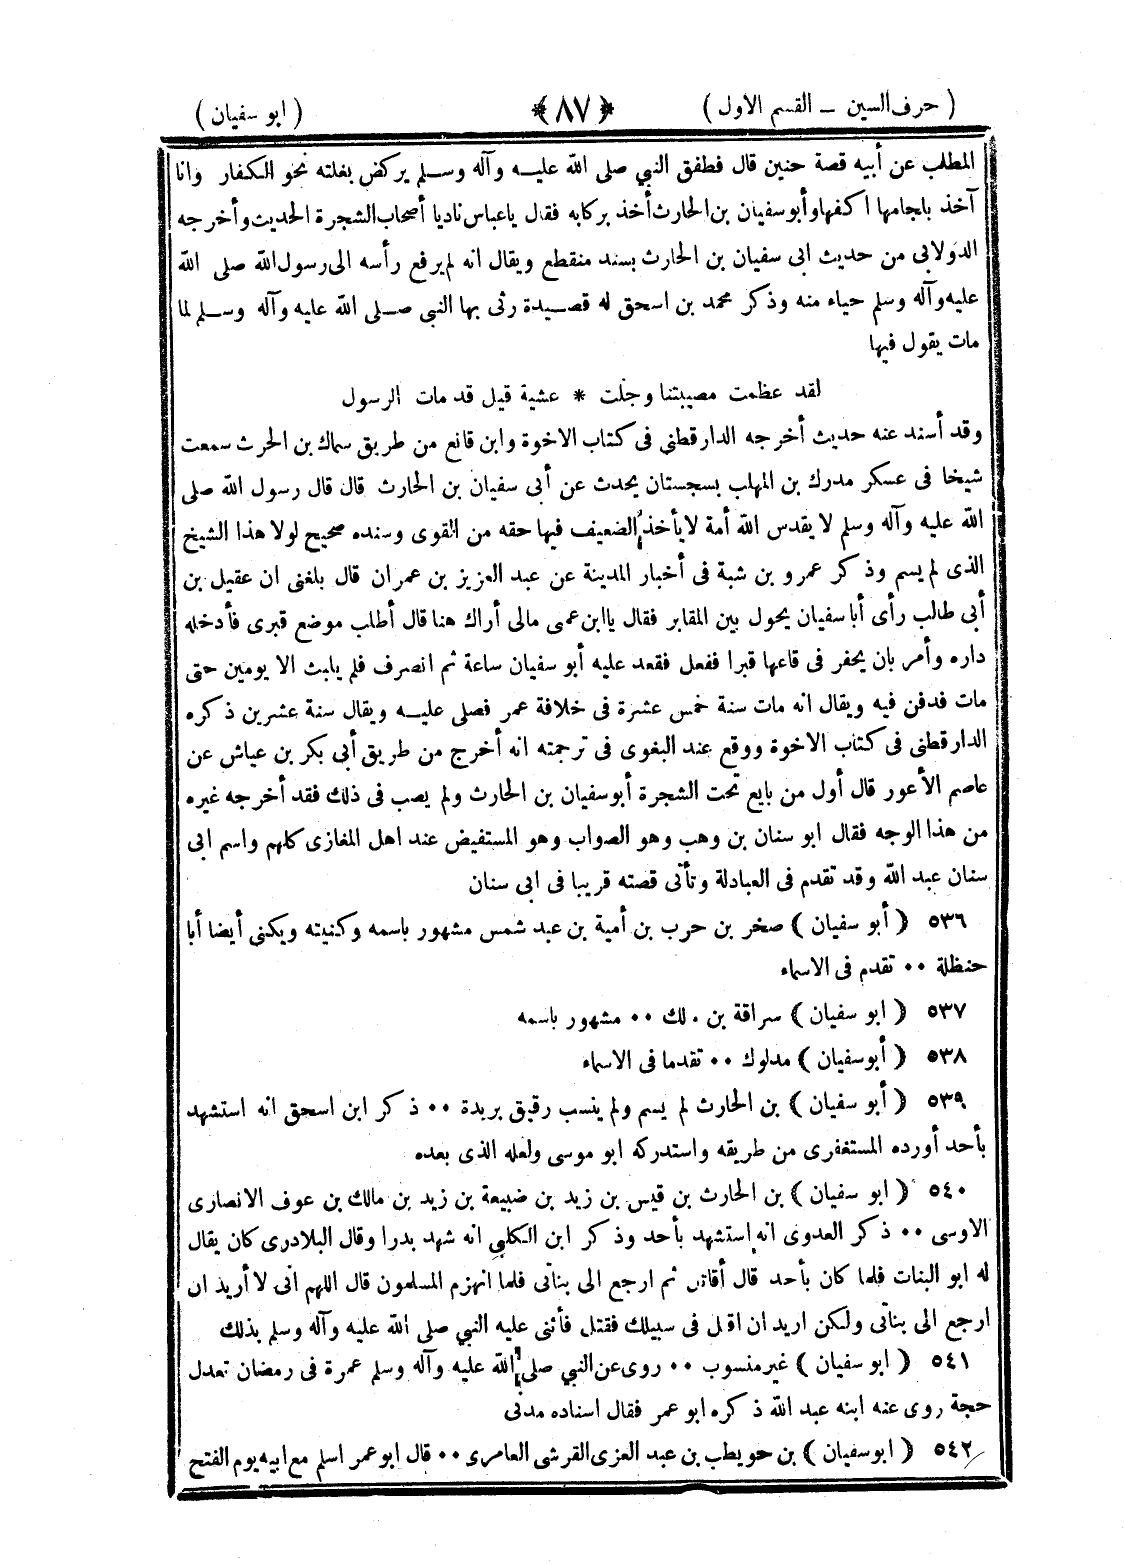 ( حرف السين – القسم الاول )
﴿ ٨٧ ﴾
( ابو سفيان )
المطلب عن أبيه قصة حنين قال فطفق النبي صلى الله عليه وآله وسلم يركض بغلته نحو الكفار وانا
آخذ بلجامها اكفها وأبو سفيان بن الحارث أخذ بركابه فقال ياعباس ناديا أصحاب الشجرة الحديث وأخرجه
الدولابي من حديث ابى سفيان بن الحارث بسند منقطع ويقال انه لم يرفع رأسه الى رسول الله صلى الله
عليه وآله وسلم حياء منه وذكر محمد بن اسحق له قصيدة رثى بها النبي صلى الله عليه وآله وسلم لما
مات يقول فيها
لقد عظمت مصيبتنا وجلت * عشية قيل قد مات الرسول
وقد أسند عنه حديث أخرجه الدارقطنى فى كتاب الاخوة وابن قانع من طريق سماك بن الحرث سمعت
شيخا فى عسكر مدرك بن المهلب بسجستان يحدث عن أبى سفيان بن الحارث قال قال رسول الله صلى
الله عليه وآله وسلم لا يقدس الله أمة لا يأخذ الضعيف فيها حقه من القوى وسنده صحيح لولا هذا الشيخ
الذى لم يسم وذكر عمرو بن شبة فى أخبار المدينة عن عبد العزيز بن عمران قال بلغنى ان عقيل بن
أبى طالب رأى أبا سفيان يحول بين المقابر فقال ياابن عمى مالى أراك هنا قال أطلب موضع قبرى فأدخله
داره وأمر بان يحفر فى قاعها قبرا ففعل فقعد عليه أبو سفيان ساعة ثم انصرف فلم يلبث الا يومين حتى
مات فدفن فيه ويقال انه مات سنة خمس عشرة فى خلافة عمر فصلى عليه ويقال سنة عشرين ذكره
الدارقطنى فى كتاب الاخوة ووقع عند البغوى فى ترجمته انه أخرج من طريق أبى بكر بن عياش عن
عاصم الأعور قال أول من بايع تحت الشجرة أبو سفيان بن الحارث ولم يصب فى ذلك فقد أخرجه غيره
من هذا الوجه فقال ابو سنان بن وهب وهو الصواب وهو المستفيض عند اهل المغازى كلهم واسم ابى
سنان عبد الله وقد تقدم فى العبادلة وتأتى قصته قريبا فى ابى سنان
٥٣٦ ( أبو سفيان ) صخر بن حرب بن أمية بن عبد شمس مشهور باسمه وكنيته ويكنى أيضا أبا
حنظلة •• تقدم فى الاسماء
٥٣٧ ( ابو سفيان ) سراقة بن .لك •• مشهور باسمه
٥٣٨ ( أبو سفيان ) مدلوك •• تقدما فى الاسماء
٥٣٩ ( أبو سفيان ) بن الحارث لم يسم ولم ينسب رقيق بريدة •• ذكر ابن اسحق انه استشهد
بأحد أورده المستغفرى من طريقه واستدركه ابو موسى ولعله الذى بعده
٥٤٠ ( ابو سفيان ) بن الحارث بن قيس بن زيد بن ضبيعة بن زيد بن مالك بن عوف الانصارى
الاوسى •• ذكر العدوى انه استشهد بأحد وذكر ابن الكلبي انه شهد بدرا وقال البلادرى كان يقال
له ابو البنات فلما كان بأحد قال أقاتل ثم ارجع الى بناتى فلما انهزم المسلمون قال اللهم انى لا أريد ان
ارجع الى بناتى ولكن اريد ان اقتل فى سبيلك فقتل فأثنى عليه النبي صلى الله عليه وآله وسلم بذلك
٥٤١ ( ابو سفيان ) غير منسوب •• روى عن النبي صلى الله عليه وآله وسلم عمرة فى رمضان تعدل
حجة روى عنه ابنه عبد الله ذكره ابو عمر فقال اسناده مدنى
٥٤٢ ( ابو سفيان ) بن حويطب بن عبد العزى القرشى العامرى •• قال ابو عمر اسلم مع ابيه يوم الفتح